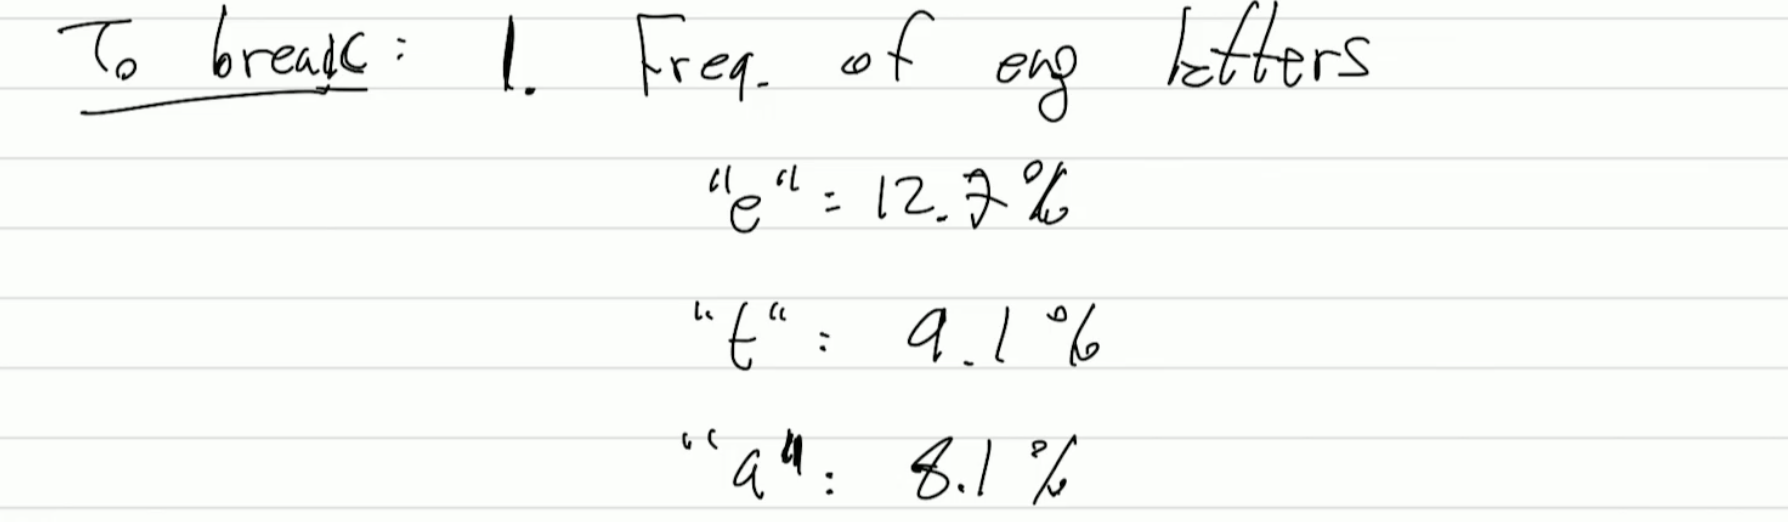 To break: 1. Freq. of eng letters
"e": 12.7%
"t": 9.1%
"a": 8.1%